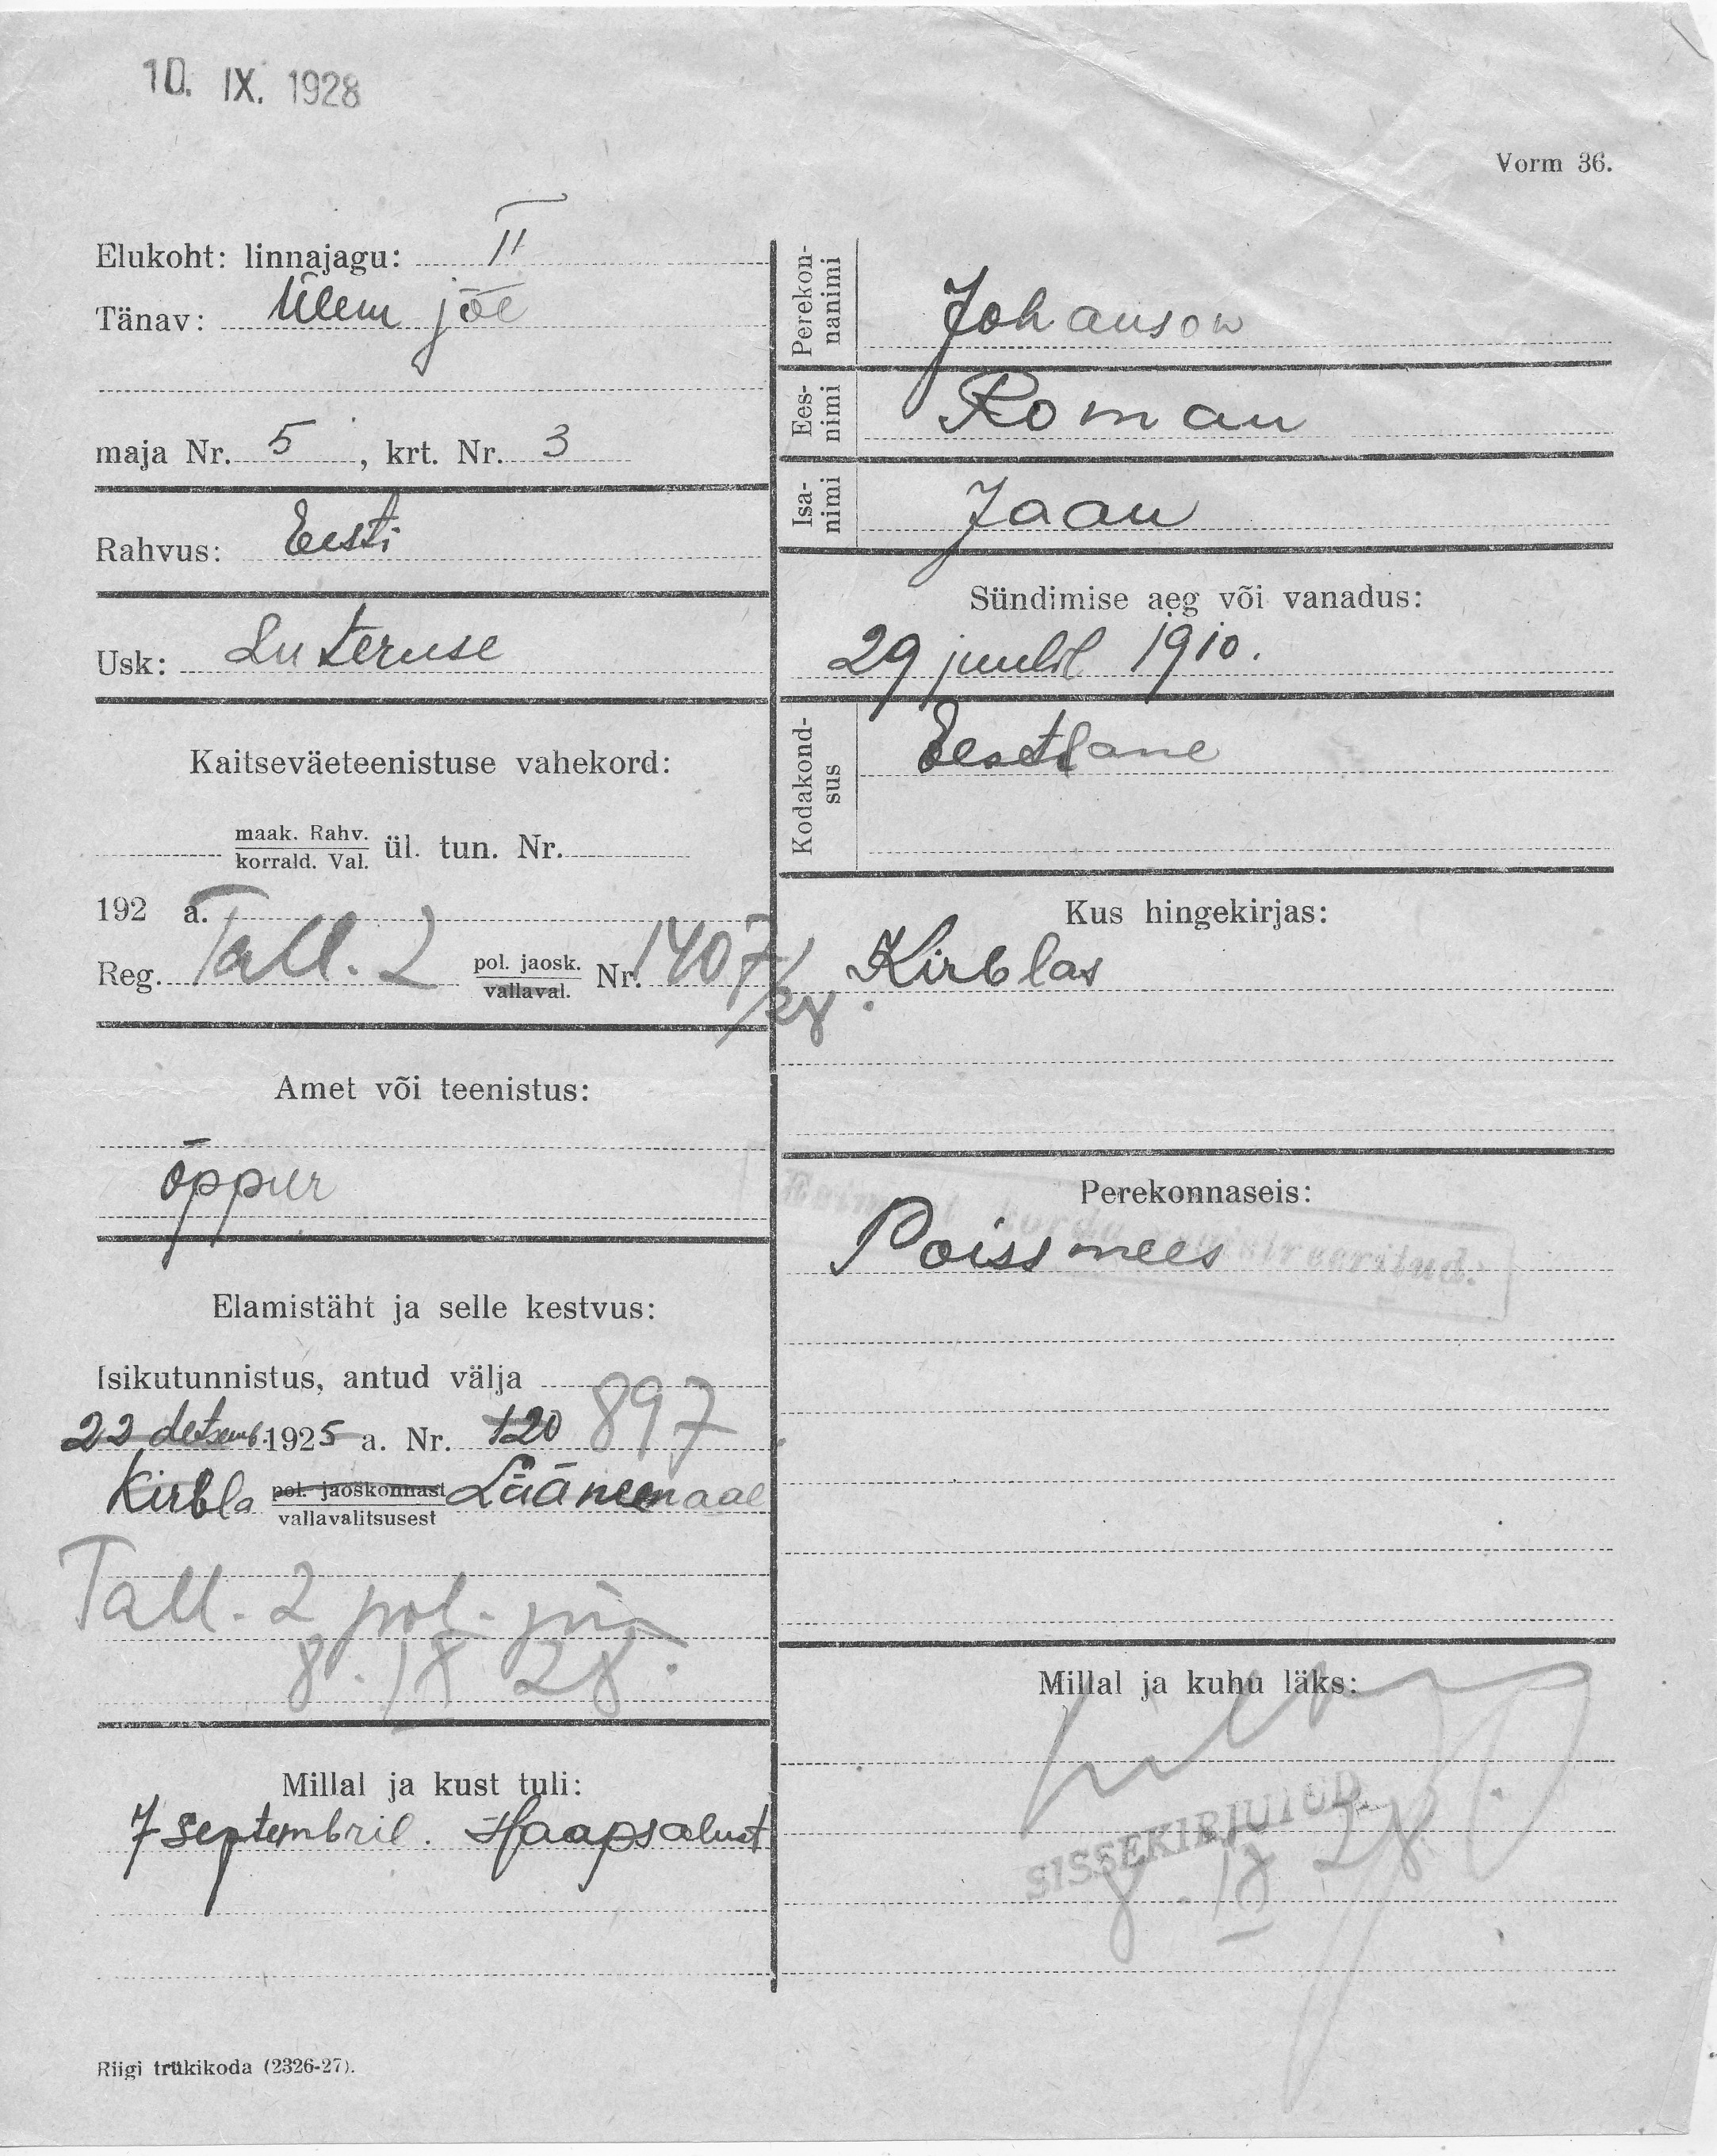 10. IX. 1928
Vorm 36.
Elukoht: linnajagu: II
Tänav: Ülem jõe
maja Nr. 5, krt. Nr. 3
Rahvus: Eesti
Usk: Luteruse
Kaitseväeteenistuse vahekord:
maak. Rahv.
korrald. Val. ül. tun. Nr.
192 a.
Reg. Tall. 2 pol. jaosk. Nr. 1407/28
vallaval.
Amet või teenistus:
õppur
Elamistäht ja selle kestvus:
Isikutunnistus, antud välja 897
22 detsemb. 1925 a. Nr. 120
Kirbla pol. jaoskonnast Läänemaal
vallavalitsusest
Tall. 2 pol.
8. IX 28.
Millal ja kust tuli:
7 septembril. Haapsalust
Riigi trükikoda (2326-27).
Perekon-
nanimi
Johanson
Ees-
nimi
Roman
Isa-
nimi
Jaan
Sündimise aeg või vanadus:
29 juulil 1910.
Kodakond-
sus
Eestlane
Kus hingekirjas:
Kirblas
Perekonnaseis:
Esimest korda registreeritud.
Poissmees
Millal ja kuhu läks:
SISSEKIRJUTUD.
8. IX 28